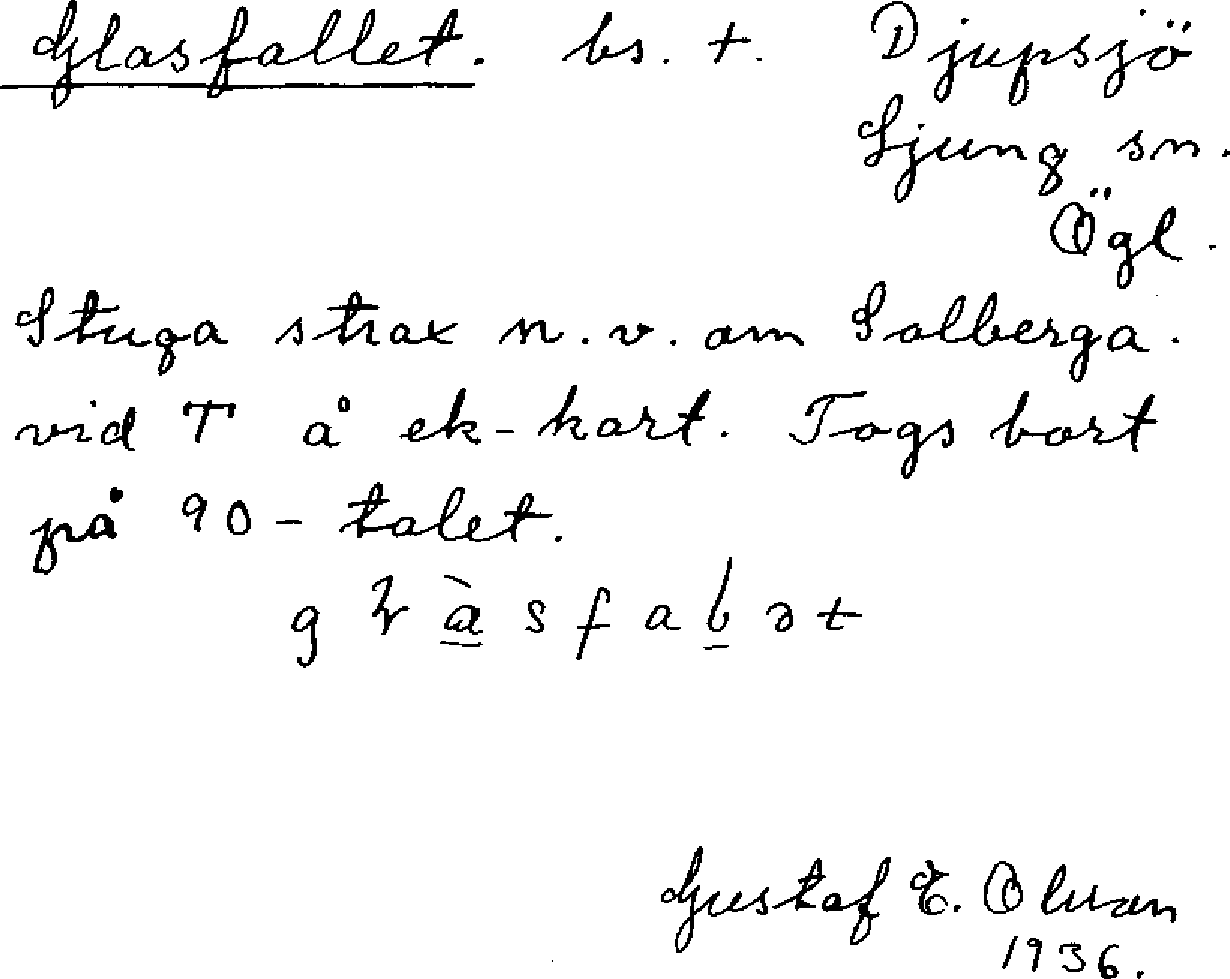 Glasfallet. bs. +. Djupsjö
Ljung sn.
Ögl.
Stuga strax n.v. om Solberga.
vid T å ek-kart. Togs bort
på 90-talet.
Gustaf E.
1936.